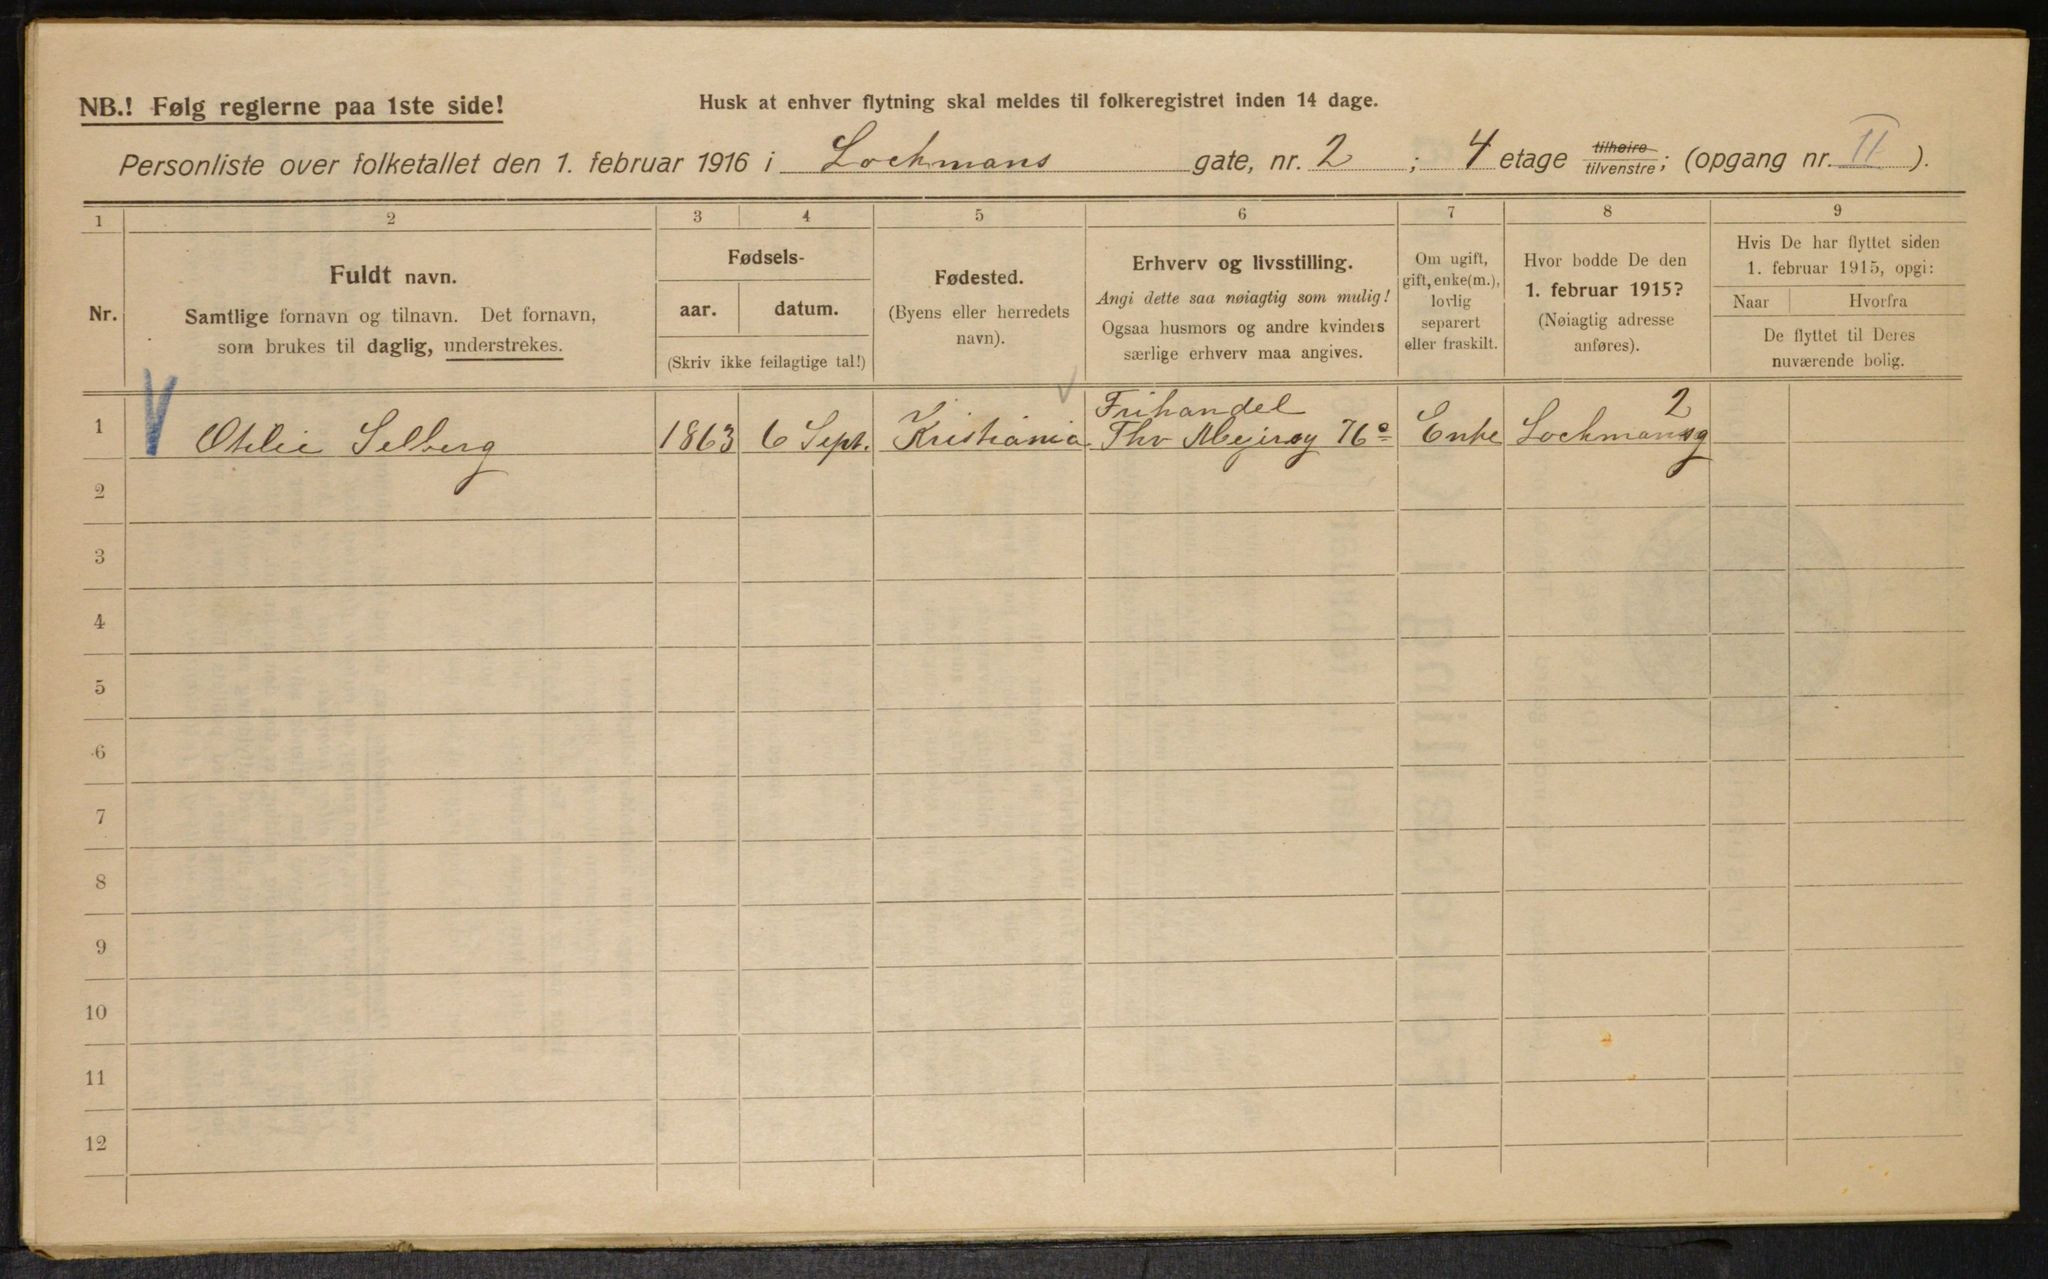 NB.! Følg reglerne paa 1ste side!
Husk at enhver flytning skal meldes til folkeregistret inden 14 dage.
Personliste over folketallet den 1. februar 1916 i Lochmans gate, nr. 2 ; 4 etage tilhøire tilvenstre; (opgang nr. II ).
1 2 3 4 5 6 7 8 9
Nr.
Fuldt navn.
Samtlige fornavn og tilnavn. Det fornavn,
som brukes til daglig, understrekes.
Fødsels-
aar. datum.
(Skriv ikke feilagtige tal!)
Fødested.
(Byens eller herredets
navn).
Erhverv og livsstilling.
Angi dette saa nøiagtig som mulig!
Ogsaa husmors og andre kvinders
særlige erhverv maa angives.
Om ugift,
gift, enke(m.),
lovlig
separert
eller fraskilt.
Hvor bodde De den
1. februar 1915?
(Nøiagtig adresse
anføres).
Hvis De har flyttet siden
1. februar 1915, opgi:
Naar Hvorfra
De flyttet til Deres
nuværende bolig.
Frihandel 2
1 Otilie Selberg 1863 6 Sept. Kristiania Thv Mejersg 76 Enke Lochmansg
2
3
4
5
6
7
8
9
10
11
12